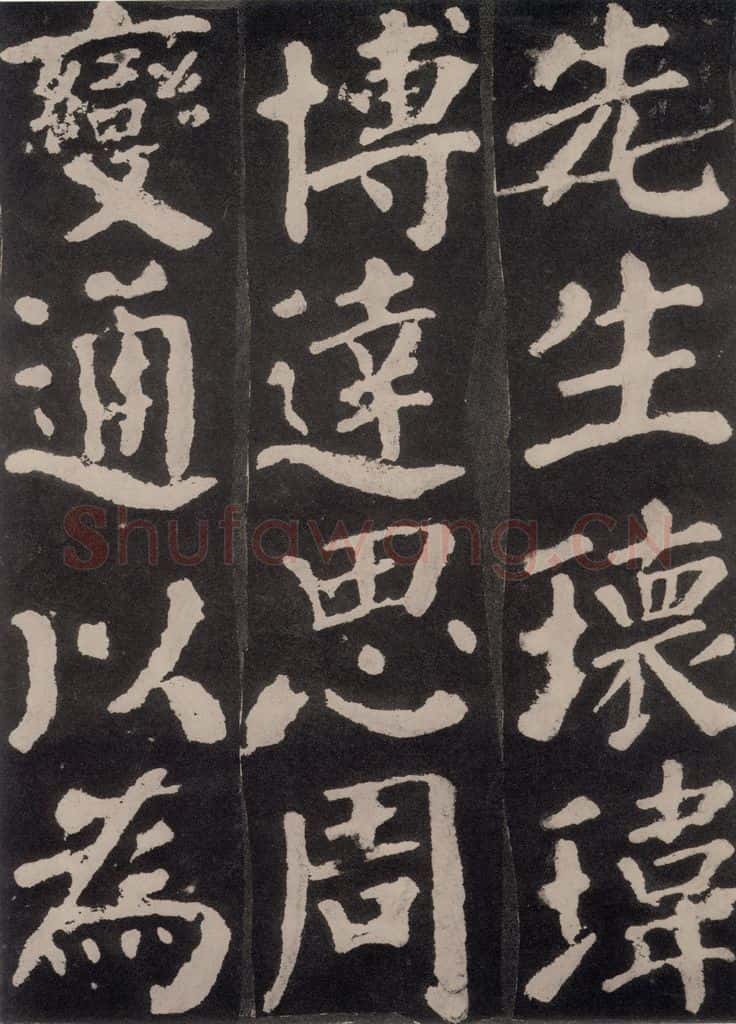 先生瓌瑋
博達思周
變通以為
Shufawang.CN